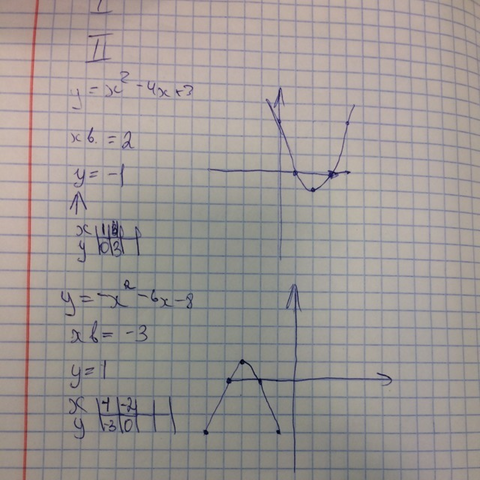 I
II
y = x² - 4x + 3
xв. = 2
y = -1
x | 1 |
y | 0 | 3 |
y = -x² - 6x - 8
xв = -3
y = 1
x | -4 | -2 |
y | -3 | 0 |